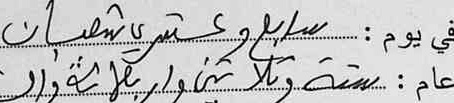 في يوم : سابع وعشري شعبان
عام : ستة وثلاثين واربعمائة والف